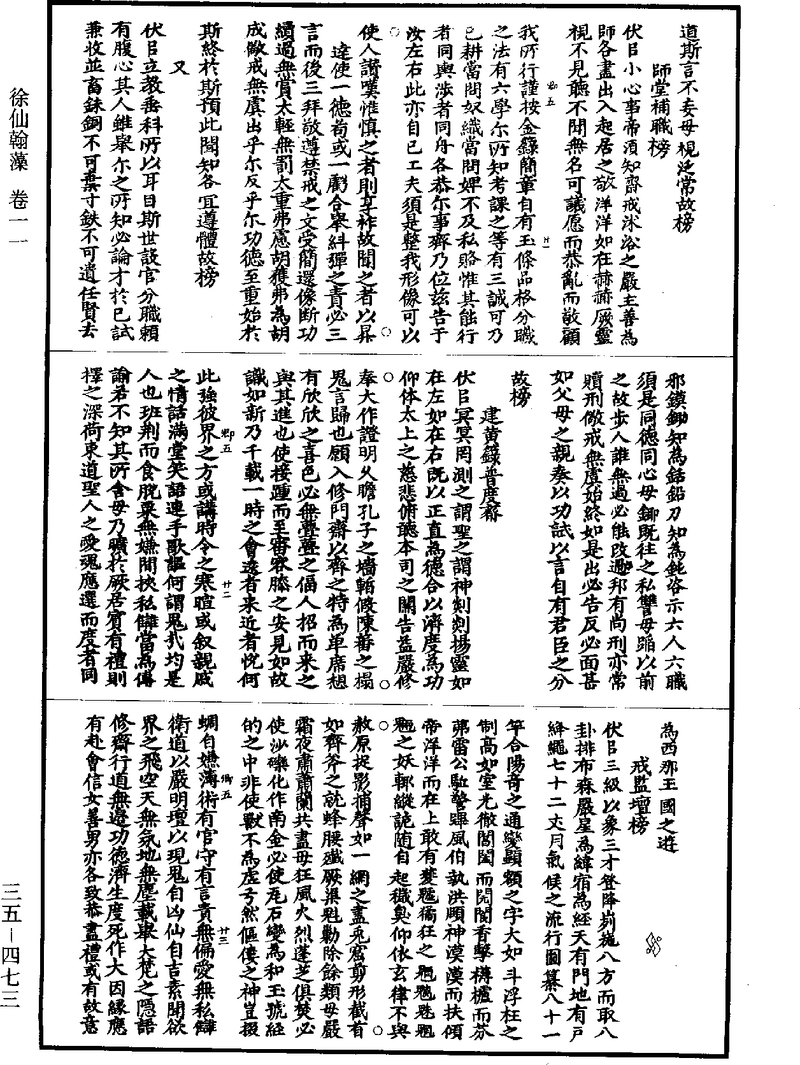 徐仙翰藻 卷一一
三五－四七三
道斯言不妄毋視泛常故榜
師堂補職榜
伏以小心事帝須知齋戒沐浴之嚴主善為
師各盡出入起居之敬洋洋如在赫赫厥靈
視不見聽不聞無名可議愿而恭亂而敬顧
卿五 廿一
我所行謹按金籙簡章自有玉條品格分職
之法有六學尓所知考課之等有三誠可乃
已耕當問奴織當問婢不及私賂惟其能行
者同輿涉者同舟各恭尓事齊乃位兹告于
汝左右此亦自己工夫須是整我形像可以
使人讚嘆惟慎之者則享祚故聞之者以昇
達使一德苟或一虧合舉糾彈之責必三
言而後三拜敬遵禁戒之文受簡還像断功
續過無賞太輕無罰太重弗慮胡獲弗為胡
成儆戒無虞出乎尓反乎尓功德至重始於
斯終於斯預此聞知各宜遵體故榜
又
伏以立教垂科所以耳目斯世設官分職賴
有腹心其人雖舉尓之所知必論才於已試
兼收並畜銖銅不可棄寸鉄不可遺任賢去
邪鏌鋣知為銛鉛刀知為鈍咨示六人六職
須是同德同心毋鋤既往之私讐毋蹈以前
之故步人誰無過必能改過邦有尚刑亦常
贖刑儆戒無虞始終如是出必告反必面甚
如父母之親奏以功試以言自有君臣之分
故榜
建黄籙普度齋
伏以冥冥罔測之謂聖之謂神剡剡揚靈如
在左如在右既以正直為德合以濟度為功
仰体太上之慈悲俯聽本司之關告益嚴修
奉大作證明久瞻孔子之墻輒倣陳蕃之榻
鬼言歸也願入修門齋以齊之特為單席想
有欣欣之喜色必無亹亹之傴人招而來之
與其進也使接踵而至審容膝之安見如故
識如新乃千載一時之會遠者來近者悅何
卿五 廿二
此強彼界之方或講時令之寒暄或叙親戚
之情話滿堂笑語連手歌謳何謂鬼均是
人也班荆而食脫粟無嫌間挾私讎當為傳
諭若不知其所舍毋乃曠於厥居賓有禮則
擇之深荷東道聖人之愛魂應選而度者同
為西那王國之遊
戒監壇榜
伏以三級以象三才登降剏施八方而取八
卦排布森嚴星為緯宿為經天有門地有戶
絳繩七十二丈月氣候之流行圖纂八十一
竿合陽奇之通變顯額之字大如斗浮柱之
制高如室光徹閶闔而閱閣香擊欂櫨而芬
弗雷公馭警蹕風伯執洪頤神漠漠而扶傾
帝洋洋而在上敢有夔魖獝狂之魍魎
魍之妖輒縱詭随自起穢臭仰依玄律不與
赦原捉影捕聲如一網之盡兎窟剪形截首
如齊斧之訧蜂腰殱厥巢魁勦除餘類毋嚴
霜夜肅肅蘭共盡毋狂風火烈蓬芝俱焚必
使沙礫化作南金必使瓦石變為和玉號經
的之中非使獸不為虐兮然傴僂之神豈掇
卿五 廿三
蜩自嫌薄術有官守有言責無偏愛無私讎
衛道以嚴明壇以現鬼自凶仙自吉素聞欲
界之飛空天無氛地無塵載舉大梵之隱語
修齋行道無邊功德濟生度死作大因緣應
有赴會信女善男亦各致恭盡禮或有故意